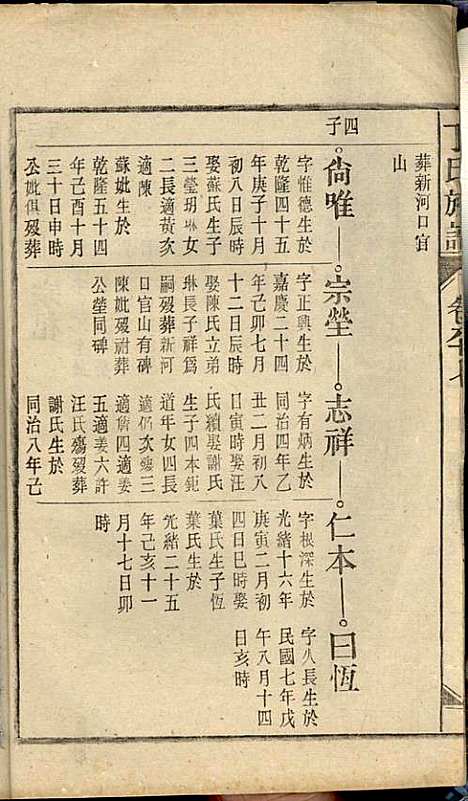 丁氏族譜
葬新河口官
山
四子
尙唯
宗瑩
志祥
仁本
曰恆
字惟德生於
乾隆四十五
年庚子十月
初八日辰時
娶蘇氏生子
三瑩玥琳女
二長適黃次
適陳
蘇妣生於
乾隆五十四
年己酉十月
三十日申時
公妣俱歿葬
字正興生於
嘉慶二十四
年己卯七月
十二日辰時
娶陳氏立弟
琳長子祥爲
嗣歿葬新河
口官山有碑
陳妣歿祔葬
公塋同碑
字有炳生於
同治四年乙
丑二月初八
日寅時娶汪
氏續娶謝氏
生子四本鉅
道年女四長
適仍次殤三
適詹四適姜
五適姜六許
汪氏殤歿葬
謝氏生於
同治八年己
字根深生於
光緒十六年
庚寅二月初
四日巳時娶
葉氏生子恆
葉氏生於
光緒二十五
年己亥十一
月十七日卯
時
字人長生於
民國七年戊
午八月十四
日亥時